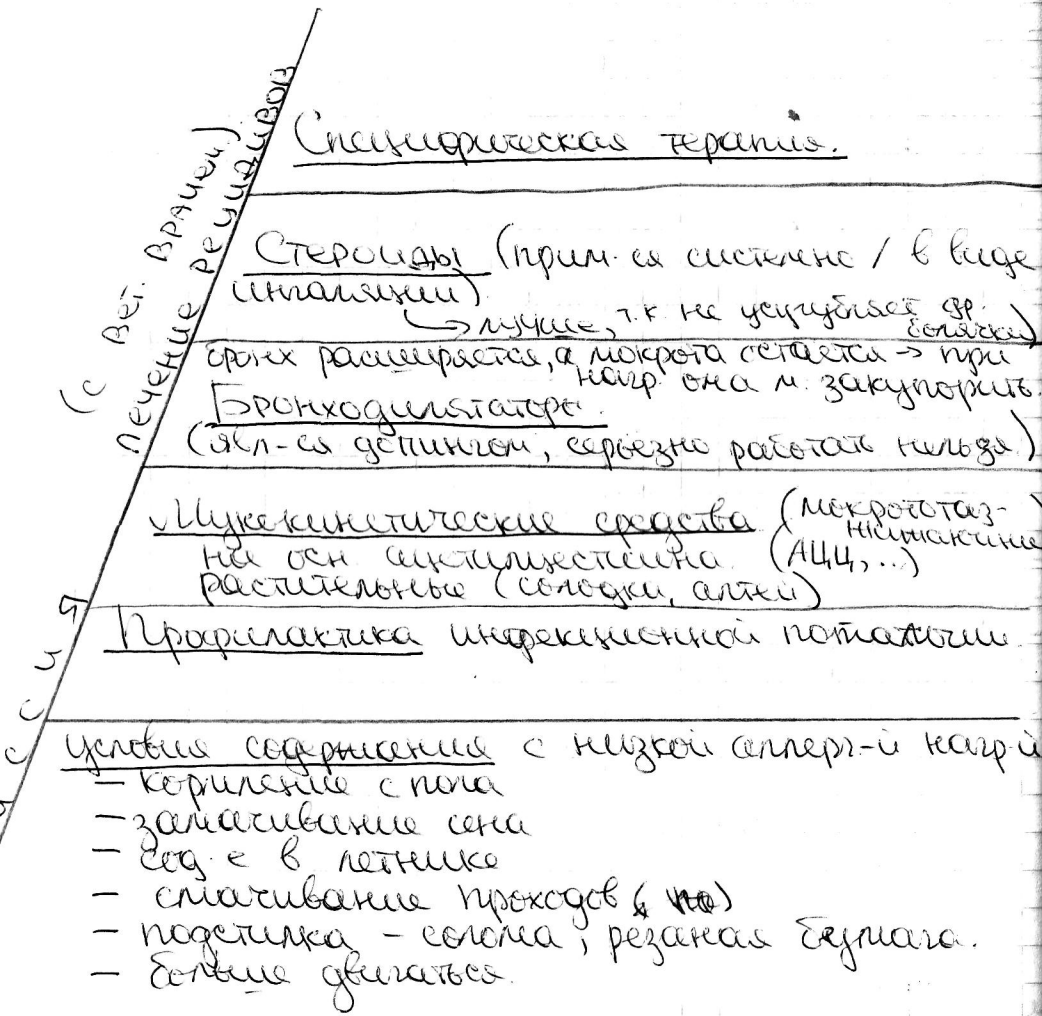 Специфическая терапия.
(с вет. врачем)
Лечение рецидивов
Стероиды (прим-ся системно / в виде
ингаляции)
↳ лучше, т.к не усугубляет др.
болячки)
бронх расширяется, а мокрота остается → при
нагр. она м. закупорить.
Бронходилятаторы.
(явл-ся допингом, серьезно работать нельзя)
Мукокинетические средства (мокротораз-
жижающие
на осн ацетилцестеина (АЦЦ,...)
растительные (солодки, алтей)
Профилактика инфекционной потологии
ссия
Условия содержания с низкой аллерг-й нагр-й
- кормление с пола
- замачивание сена
- сод-е в летнике
- смачивание проходов
- подстилка - солома, резаная бумага.
- больше двигаться.